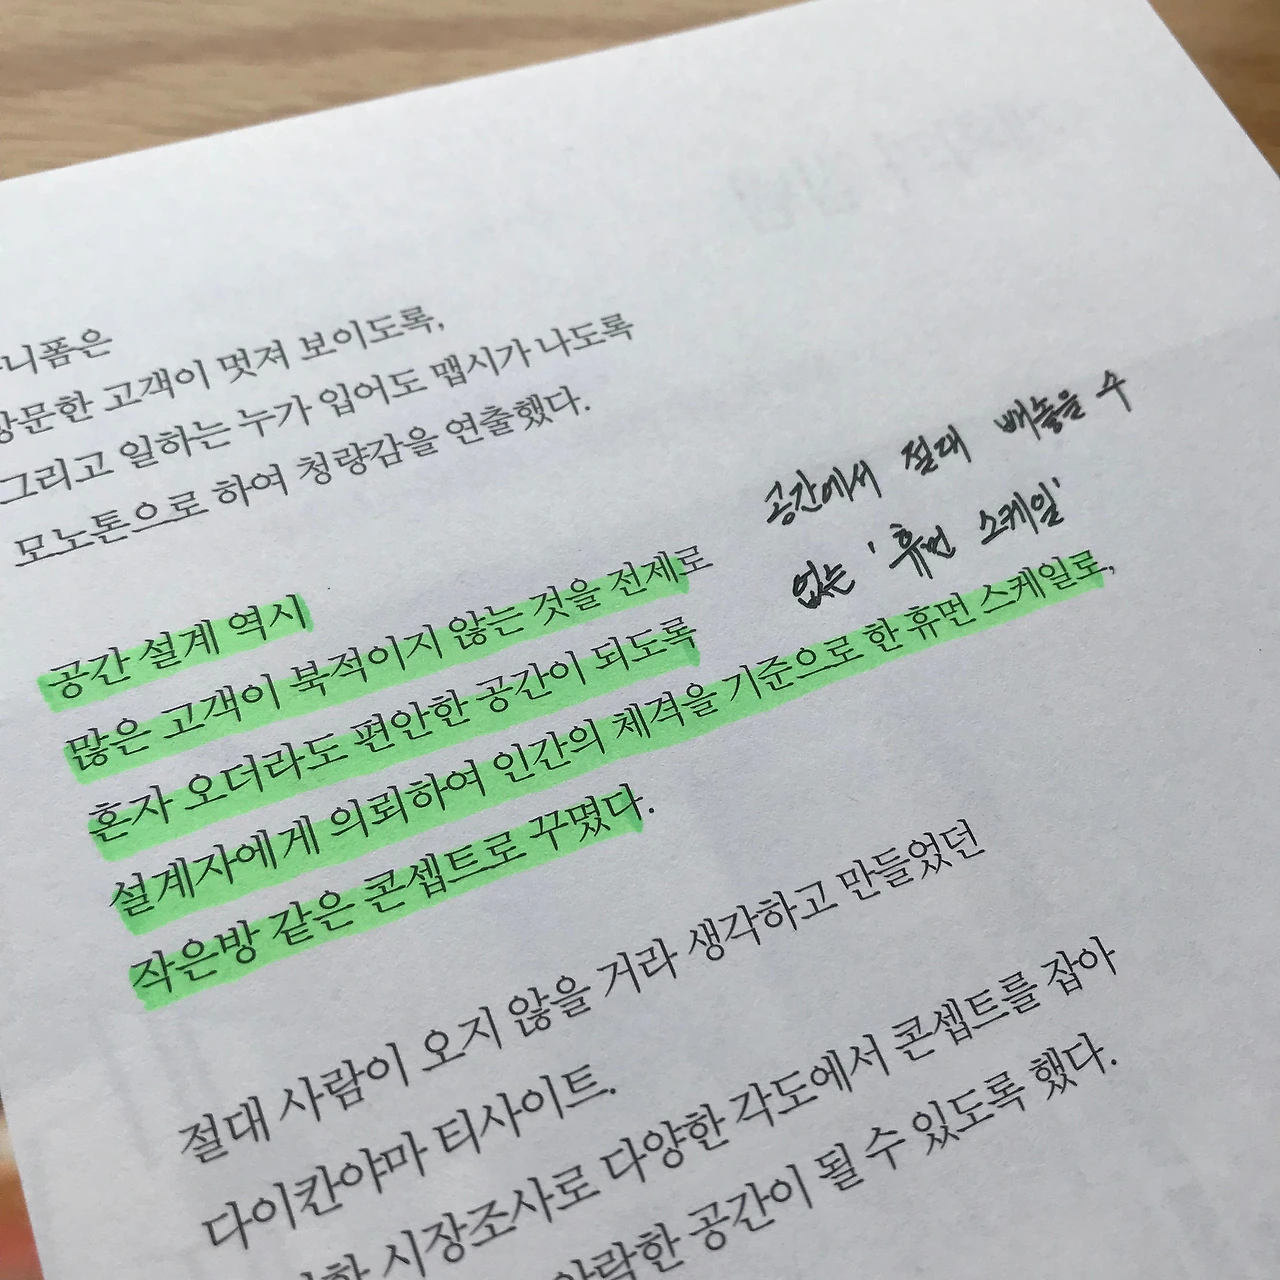 니폼은
방문한 고객이 멋져 보이도록,
그리고 일하는 누가 입어도 맵시가 나도록
모노톤으로 하여 청량감을 연출했다.
공간에서 절대 빼놓을 수
없는 '휴먼 스케일'
공간 설계 역시
많은 고객이 북적이지 않는 것을 전제로
혼자 오더라도 편안한 공간이 되도록
설계자에게 의뢰하여 인간의 체격을 기준으로 한 휴먼 스케일로,
작은방 같은 콘셉트로 꾸몄다.
절대 사람이 오지 않을 거라 생각하고 만들었던
다이칸야마 티사이트.
시장조사로 다양한 각도에서 콘셉트를 잡아
공간이 될 수 있도록 했다.